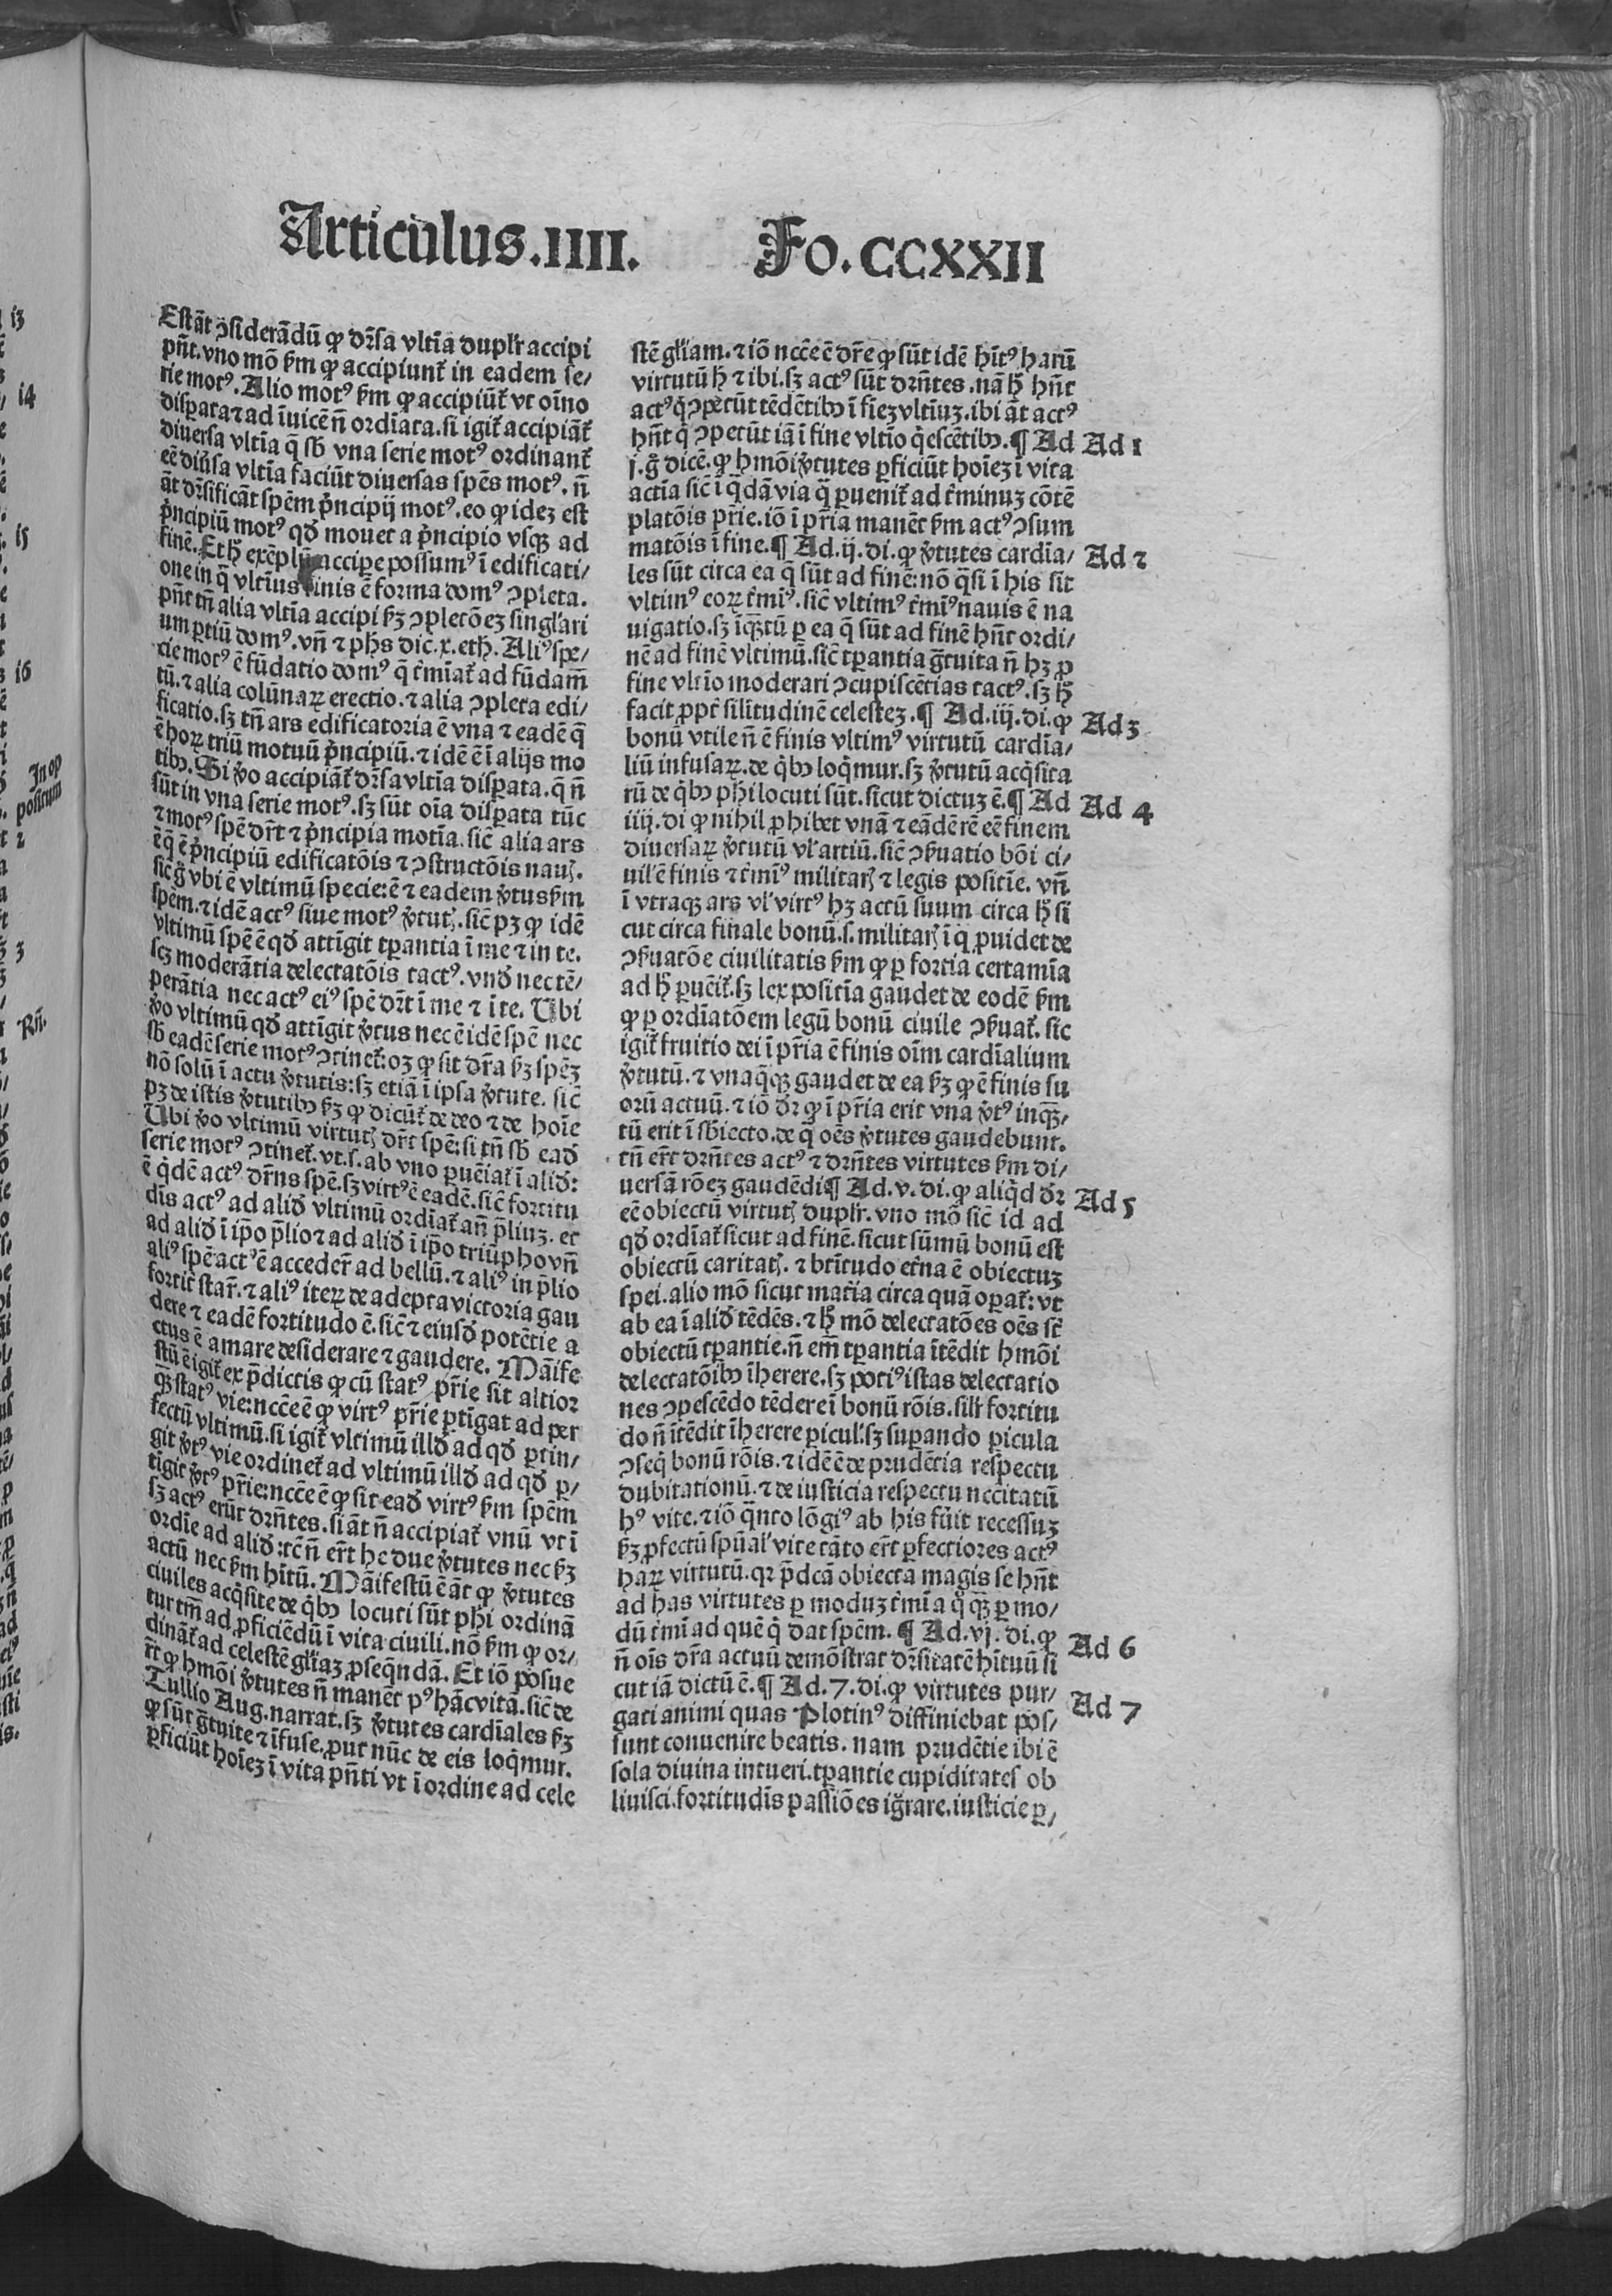 Articulus.IIII. Fo.CCXXII
Est āt ↄsiderādū ꝙ dr̄sa vltīa duplr̄ accipi
pn̄t. vno mō ẜm ꝙ accipiunt᷑ in eadem se/
rie motꝰ. Alio motꝰ ẜm ꝙ accipiūt᷑ vt oīno
disꝑata ⁊ ad īuicē n̄ ordīata. si igit᷑ accipiāt᷑
diuersa vltīa q̄ sb̄ vna serie motꝰ ordinant᷑
eē diu̾sa vltīa faciūt diuersas spēs motꝰ. n̄
āt dr̄sificāt spēm pͥncipij motꝰ. eo ꝙ idez est
pͥncipiū motꝰ qd̄ mouet a pͥncipio vsqꝫ ad
finē. Et hꝰ exēplū accipe possumꝰ ī edificati/
one in q̄ vltimꝰ finis ē forma domꝰ ↄpleta.
pn̄t tn̄ alia vltīa accipi ẜꝫ ↄpletōez singl̓ari
um ꝑtiū domꝰ. vn̄ ⁊ ph̄s dic. x. eth. Aliꝰ spe/
cie motꝰ ē fūdatio domꝰ q̄ tͥmīat᷑ ad fūdam̄
tū. ⁊ alia colūnaꝝ erectio. ⁊ alia ↄpleta edi/
ficatio. sꝫ tn̄ ars edificatoria ē vna ⁊ eadē q̄
ē hoꝝ triū motuū pͥncipiū. ⁊ idē ē ī alijs mo
tibꝫ. Si v̾o accipiāt᷑ dr̄sa vltīa disꝑata. q̄ n̄
sūt in vna serie motꝰ. sꝫ sūt oīa disꝑata tūc
⁊ motꝰ spē dr̄t ⁊ pͥncipia motīa. sic̄ alia ars
ē q̄ ē pͥncipiū edificatōis ⁊ ↄstructōis nauꝭ.
sic̄ gͦ vbi ē vltimū specie: ē ⁊ eadem v̾tus ẜm
spēm. ⁊ idē actꝰ siue motꝰ v̾tutꝭ. sic̄ pꝫ ꝙ idē
vltimū spē ē qd̄ attīgit tꝑantia ī me ⁊ in te.
scꝫ moderātia delectatōis tactꝰ. vnd̄ nec tē/
perātia nec actꝰ eiꝰ spē dr̄t ī me ⁊ ī te. Ubi
v̾o vltimū qd̄ attīgit v̾tus nec ē idē spē nec
sb̄ eadē serie motꝰ ↄtinet᷑: oꝫ ꝙ sit dr̄a ẜꝫ spēꝫ
nō solū ī actu v̾tutis: sꝫ etiā ī ipsa v̾tute. sic̄
pꝫ de istis v̾tutibꝫ ẜꝫ ꝙ dicūt᷑ de deo ⁊ de hoīe
Ubi v̾o vltimū virtutꝭ dr̄t spē: si tn̄ sb̄ ead̄
serie motꝰ ↄtinet᷑. vt. s. ab vno ꝑueīat᷑ ī alid̄:
ē q̇dē actꝰ dr̄ns spē. sꝫ virtꝰ ē eadē. sic̄ fortitu
dīs actꝰ ad alid̄ vltimū ordīat᷑ an̄ p̄liuꝫ. et
ad alid̄ ī ip̄o p̄lio ⁊ ad alid̄ ī ip̄o triūpho vn̄
aliꝰ spē actꝰ ē accederͤ ad bellū. ⁊ aliꝰ in p̄lio
fortir̓ starͤ. ⁊ aliꝰ iteꝝ de adepta victoria gau
dere ⁊ eadē fortitudo ē. sic̄ ⁊ eiusd̄ potētie a
ctus ē amare desiderare ⁊ gaudere. Māife
stū ē igit᷑ ex p̄dictis ꝙ cū statꝰ pr̄ie sit altior
qꝫ statꝰ vie: nc̄ce ē ꝙ virtꝰ pr̄ie ꝑtīgat ad per
fectū vltimū. si igit᷑ vltimū illd̄ ad qd̄ ꝑtin/
git v̾tꝰ vie ordinet᷑ ad vltimū illd̄ ad qd̄ ꝑ/
tīgit v̾tꝰ pr̄ie: nc̄ce ē ꝙ sit ead̄ virtꝰ ẜm spēm
sꝫ actꝰ erūt drn̄tes. si āt n̄ accipiat᷑ vnū vt ī
ordīe ad alid̄: tc̄ n̄ er̄t he due v̾tutes nec ẜꝫ
actū nec ẜm hītū. Māifestū ē āt ꝙ v̾tutes
ciuiles acq̇site de q̇bꝫ locuti sūt ph̄i ordinā
tur tm̄ ad ꝑficiēdū ī vita ciuili. nō ẜm ꝙ or/
dināt᷑ ad celestē gl̓iaꝫ ꝓseq̄ndā. Et iō posue
rt̄ ꝙ hmōi v̾tutes n̄ manēt pꝰ hāc vitā. sic̄ de
Tullio Aug. narrat. sꝫ v̾tutes cardīales ẜꝫ
ꝙ sūt gͣtuite ⁊ īfuse. ꝓut nūc de eis loq̇mur.
ꝑficiūt hoīeꝫ ī vita pn̄ti vt ī ordine ad cele
stē gl̓iam. ⁊ iō nc̄ce ē dr̄e ꝙ sūt idē hītꝰ harū
virtutū hͥ ⁊ ibi. sꝫ actꝰ sūt drn̄tes. nā hͥ hn̄t
actꝰ q̇ ↄpetūt tēdētibꝫ ī fieꝫ vltīuꝫ. ibi āt actꝰ
hn̄t q̇ ↄpetūt iā ī fine vltīo q̇escētibꝫ. ¶ Ad
Ad 1
j. gͦ dicē. ꝙ hmōi v̾tutes ꝑficiūt hoīeꝫ ī vita
actīa sic̄ ī q̄dā via q̄ ꝑuenit᷑ ad tͥminuꝫ cōtē
platōis pr̄ie. iō ī pr̄ia manēt ẜm actꝰ ↄsum
matōis ī fine. ¶ Ad. ij. di. ꝙ v̾tutes cardīa/
Ad 2
les sūt circa ea q̄ sūt ad finē: nō q̄si ī his sit
vltimꝰ eoꝝ tͥmīꝰ. sic̄ vltimꝰ tͥmīꝰ nauis ē na
uigatio. sꝫ īqꝫtū ꝑ ea q̄ sūt ad finē hn̄t ordi/
nē ad finē vltimū. sic̄ tꝑantia gͣtuita n̄ hꝫ ꝓ
fine vltīo moderari ↄcupiscētias tactꝰ. sꝫ hͦ
facit ꝓpt̾ silitudinē celesteꝫ. ¶ Ad. iij. di. ꝙ
Ad 3
bonū vtile n̄ ē finis vltimꝰ virtutū cardīa/
liū infusaꝝ. de q̇bꝫ loq̇mur. sꝫ v̾tutū acq̇sita
rū de q̇bꝫ phī locuti sūt. sicut dictuꝫ ē. ¶ Ad
Ad 4
iiij. di ꝙ nihil ꝓhibet vnā ⁊ eādē rē eē finem
diuersaꝝ v̾tutū vl̓ artiū. sic̄ ↄẜuatio bōi ci/
uil̓ ē finis ⁊ tͥmīꝰ militarꝭ ⁊ legis positīe. vn̄
ī vtraqꝫ ars vl̓ virtꝰ hꝫ actū suum circa hͦ si
cut circa finale bonū. s. militarꝭ ī q̇ ꝓuidet de
ↄẜuatōe ciuilitatis ẜm ꝙ ꝑ fortia certamīa
ad hͦ ꝑuēit᷑. sꝫ lex positīa gaudet de eodē ẜm
ꝙ ꝑ ordīatōem legū bonū ciuile ↄẜuat᷑. sic
igit᷑ fruitio dei ī pr̄ia ē finis oīm cardīalium
v̾tutū. ⁊ vnaq̄qꝫ gaudet de ea ẜꝫ ꝙ ē finis su
orū actuū. ⁊ iō dr̄ ꝙ ī pr̄ia erit vna v̾tꝰ inqꝫ/
tū erit ī sb̄iecto. de q̄ oēs v̾tutes gaudebunt.
tn̄ er̄t drn̄tes actꝰ ⁊ drn̄tes virtutes ẜm di/
uersā rōeꝫ gaudēdi ¶ Ad. v. di. ꝙ aliq̇d dr̄
Ad 5
eē obiectū virtutꝭ duplr̄. vno mō sic̄ id ad
qd̄ ordīat᷑ sicut ad finē. sicut sūmū bonū est
obiectū caritatꝭ. ⁊ btītudo et̾na ē obiectuꝫ
spei. alio mō sicut mat̾ia circa quā oꝑat᷑: vt
ab ea ī alid̄ tēdēs. ⁊ hͦ mō delectatōes oēs st̄
obiectū tꝑantie. n̄ em̄ tꝑantia ītēdit hmōi
delectatōibꝫ īherere. sꝫ potiꝰ istas delectatio
nes ↄpescēdo tēdere ī bonū rōis. silr̄ fortitu
do n̄ ītēdit īherere pericul̓. sꝫ suꝑando ꝑicula
ↄseq̇ bonū rōis. ⁊ idē ē de prudētia respectu
dubitationū. ⁊ de iusticia respectu nc̄citatū
hꝰ vite. ⁊ iō q̄nto lōgiꝰ ab his fūit recessuꝫ
ẜꝫ ꝓfectū spūal̓ vite tāto er̄t ꝑfectiores actꝰ
haꝝ virtutū. qꝛ p̄dcā obiecta magis se hn̄t
ad has virtutes ꝑ moduꝫ tͥmī a q̇ qꝫ ꝑ mo/
dū tͥmī ad quē q̇ dat spēm. ¶ Ad. vj. di. ꝙ
Ad 6
n̄ oīs dr̄a actuū demōstrat dr̄sitatē hītuū si
cut iā dictū ē. ¶ Ad. 7. di. ꝙ virtutes pur/
Ad 7
gati animi quas Plotinꝰ diffiniebat pos/
sunt conuenire beatis. nam prudētie ibi ē
sola diuina intueri. tꝑantie cupiditates ob
liuisci. fortitudīs passiōes igͦrare. iusticie ꝑ/
iz
i4
i5
i6
In op
positum
2
3
Rn̄.